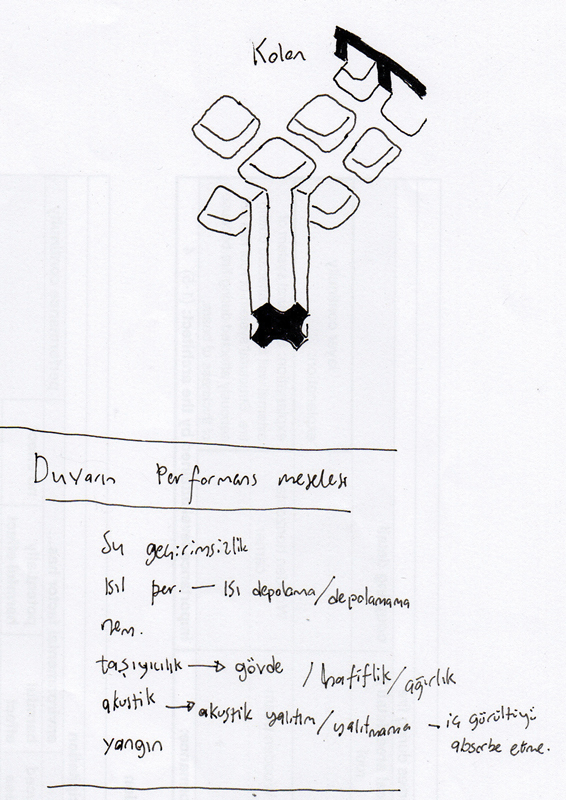 Kolon
Duvarın Performans meselesi
Su geçirimsizlik
Isıl per. — Isı depolama/depolamama
nem.
taşıyıcılık → gövde / hafiflik/ağırlık
akustik → akustik yalıtım/yalıtmama → iç gürültüyü
absorbe etme.
yangın